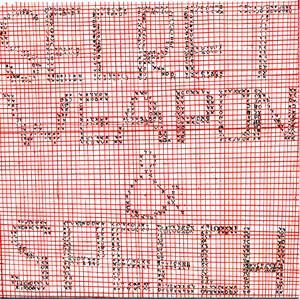 SECRET
WEAPON
&
SPEECH